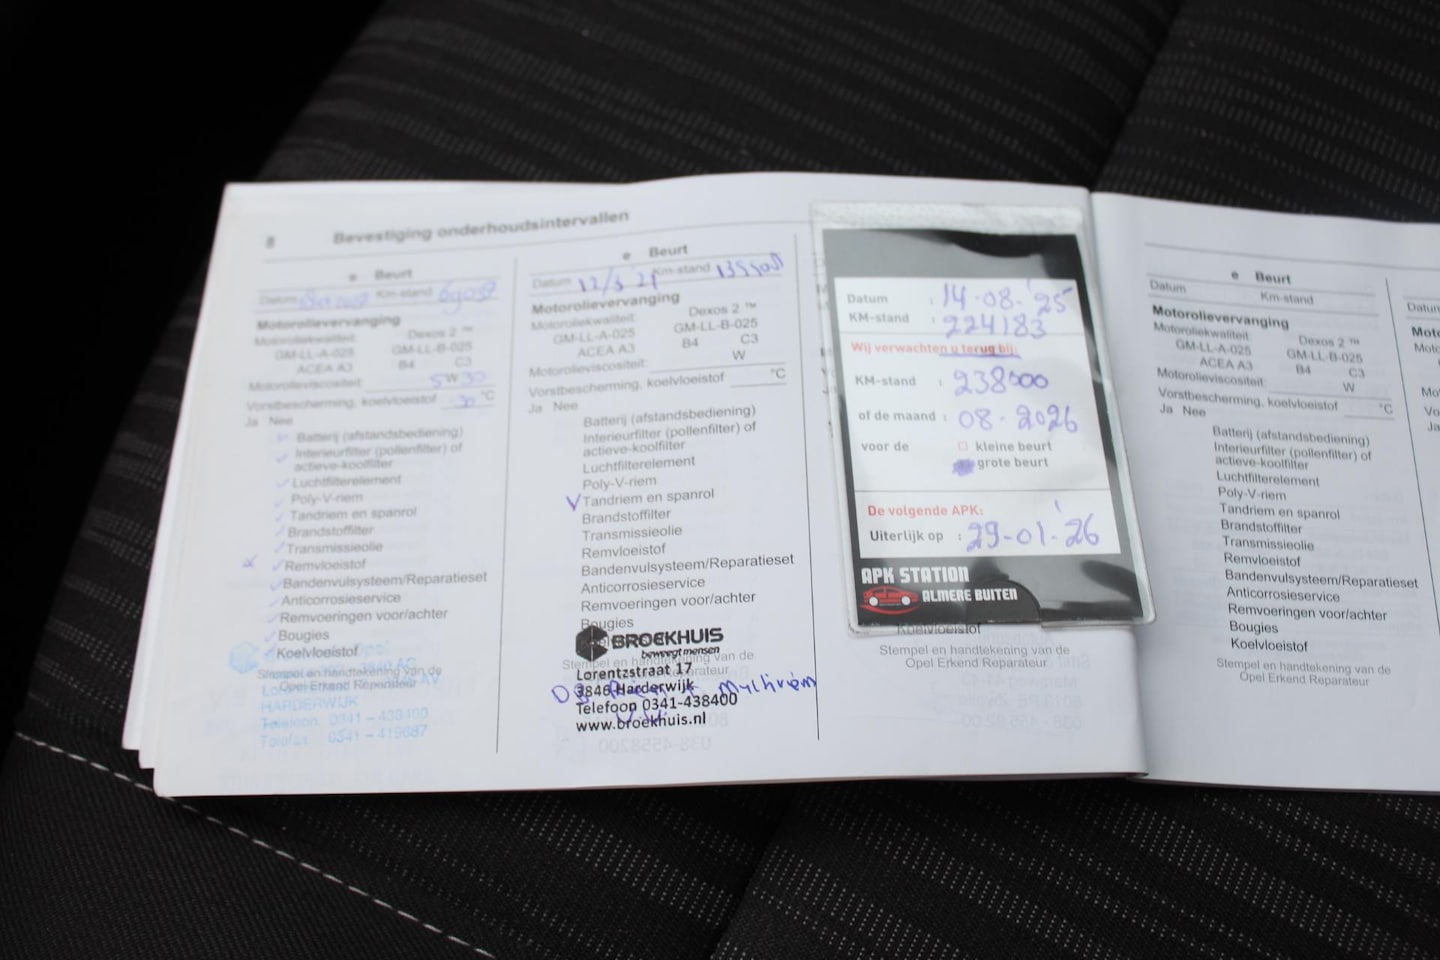 8 Bevestiging onderhoudsintervallen
e Beurt
Datum Km-stand
Motorolievervanging
Motoroliekwaliteit: Dexos 2 ™
GM-LL-A-025 GM-LL-B-025
ACEA A3 B4 C3
Motorolieviscositeit: 5W30
Vorstbescherming, koelvloeistof -30 °C
Ja Nee
Batterij (afstandsbediening)
Interieurfilter (pollenfilter) of
actieve-koolfilter
Luchtfilterelement
Poly-V-riem
Tandriem en spanrol
Brandstoffilter
Transmissieolie
Remvloeistof
Bandenvulsysteem/Reparatieset
Anticorrosieservice
Remvoeringen voor/achter
Bougies
Koelvloeistof
Stempel en handtekening van de
Opel Erkend Reparateur
HARDERWIJK
Telefoon 0341-438400
Telefax 0341-419687
e Beurt
Datum 12/3 21 Km-stand
Motorolievervanging
Motoroliekwaliteit: Dexos 2 ™
GM-LL-A-025 GM-LL-B-025
ACEA A3 B4 C3
Motorolieviscositeit: W
Vorstbescherming, koelvloeistof °C
Ja Nee
Batterij (afstandsbediening)
Interieurfilter (pollenfilter) of
actieve-koolfilter
Luchtfilterelement
Poly-V-riem
V Tandriem en spanrol
Brandstoffilter
Transmissieolie
Remvloeistof
Bandenvulsysteem/Reparatieset
Anticorrosieservice
Remvoeringen voor/achter
Bougies
BROEKHUIS
beweegt mensen
Stempel en handtekening van de
Lorentzstraat 17
3846 Harderwijk
Multiriem
Telefoon 0341-438400
www.broekhuis.nl
Datum : 14-08-'25
KM-stand : 224183
Wij verwachten u terug bij:
KM-stand : 238000
of de maand : 08-2026
voor de kleine beurt
grote beurt
De volgende APK:
Uiterlijk op : 29-01-'26
APK STATION
ALMERE BUITEN
Koelvloeistof
Stempel en handtekening van de
Opel Erkend Reparateur
e Beurt
Datum Km-stand
Motorolievervanging
Motoroliekwaliteit: Dexos 2 ™
GM-LL-A-025 GM-LL-B-025
ACEA A3 B4 C3
Motorolieviscositeit: W
Vorstbescherming, koelvloeistof °C
Ja Nee
Batterij (afstandsbediening)
Interieurfilter (pollenfilter) of
actieve-koolfilter
Luchtfilterelement
Poly-V-riem
Tandriem en spanrol
Brandstoffilter
Transmissieolie
Remvloeistof
Bandenvulsysteem/Reparatieset
Anticorrosieservice
Remvoeringen voor/achter
Bougies
Koelvloeistof
Stempel en handtekening van de
Opel Erkend Reparateur